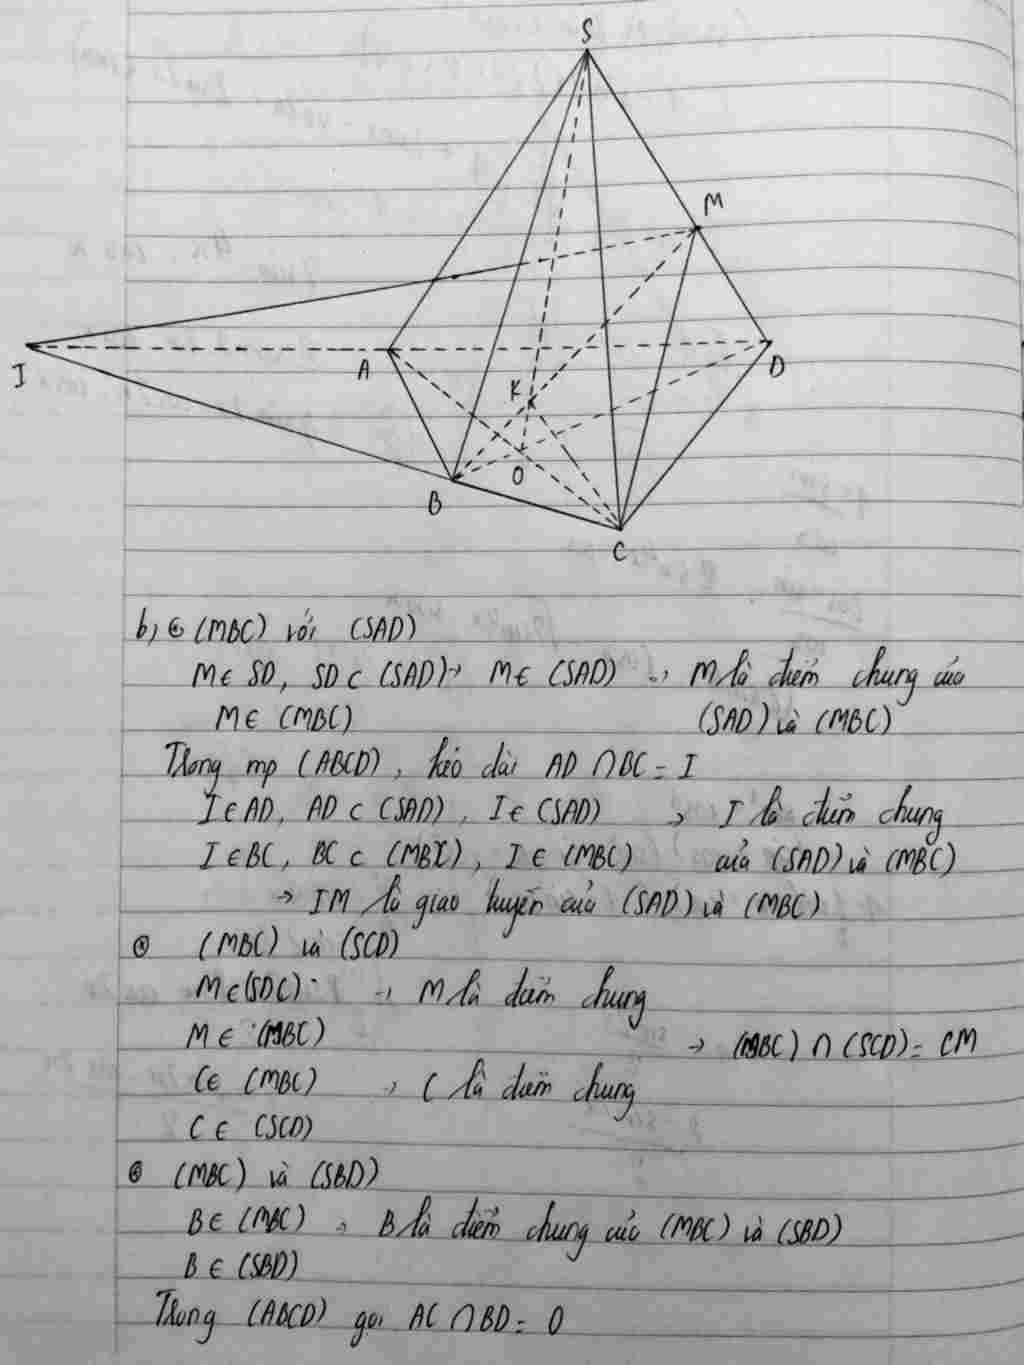 S
M
I
A
D
K
O
B
C
b, (MBC) với (SAD)
M ∈ SD, SD ⊂ (SAD) → M ∈ (SAD) → M là điểm chung của
M ∈ (MBC) (SAD) và (MBC)
Trong mp (ABCD), kéo dài AD ∩ BC = I
I ∈ AD, AD ⊂ (SAD), I ∈ (SAD) → I là điểm chung
I ∈ BC, BC ⊂ (MBC), I ∈ (MBC) của (SAD) và (MBC)
→ IM là giao tuyến của (SAD) và (MBC)
(MBC) và (SCD)
M ∈ (SDC) → M là điểm chung
M ∈ (MBC)
→ (MBC) ∩ (SCD) = CM
C ∈ (MBC) → C là điểm chung
C ∈ (SCD)
(MBC) và (SBD)
B ∈ (MBC) → B là điểm chung của (MBC) và (SBD)
B ∈ (SBD)
Trong (ABCD) gọi AC ∩ BD = O